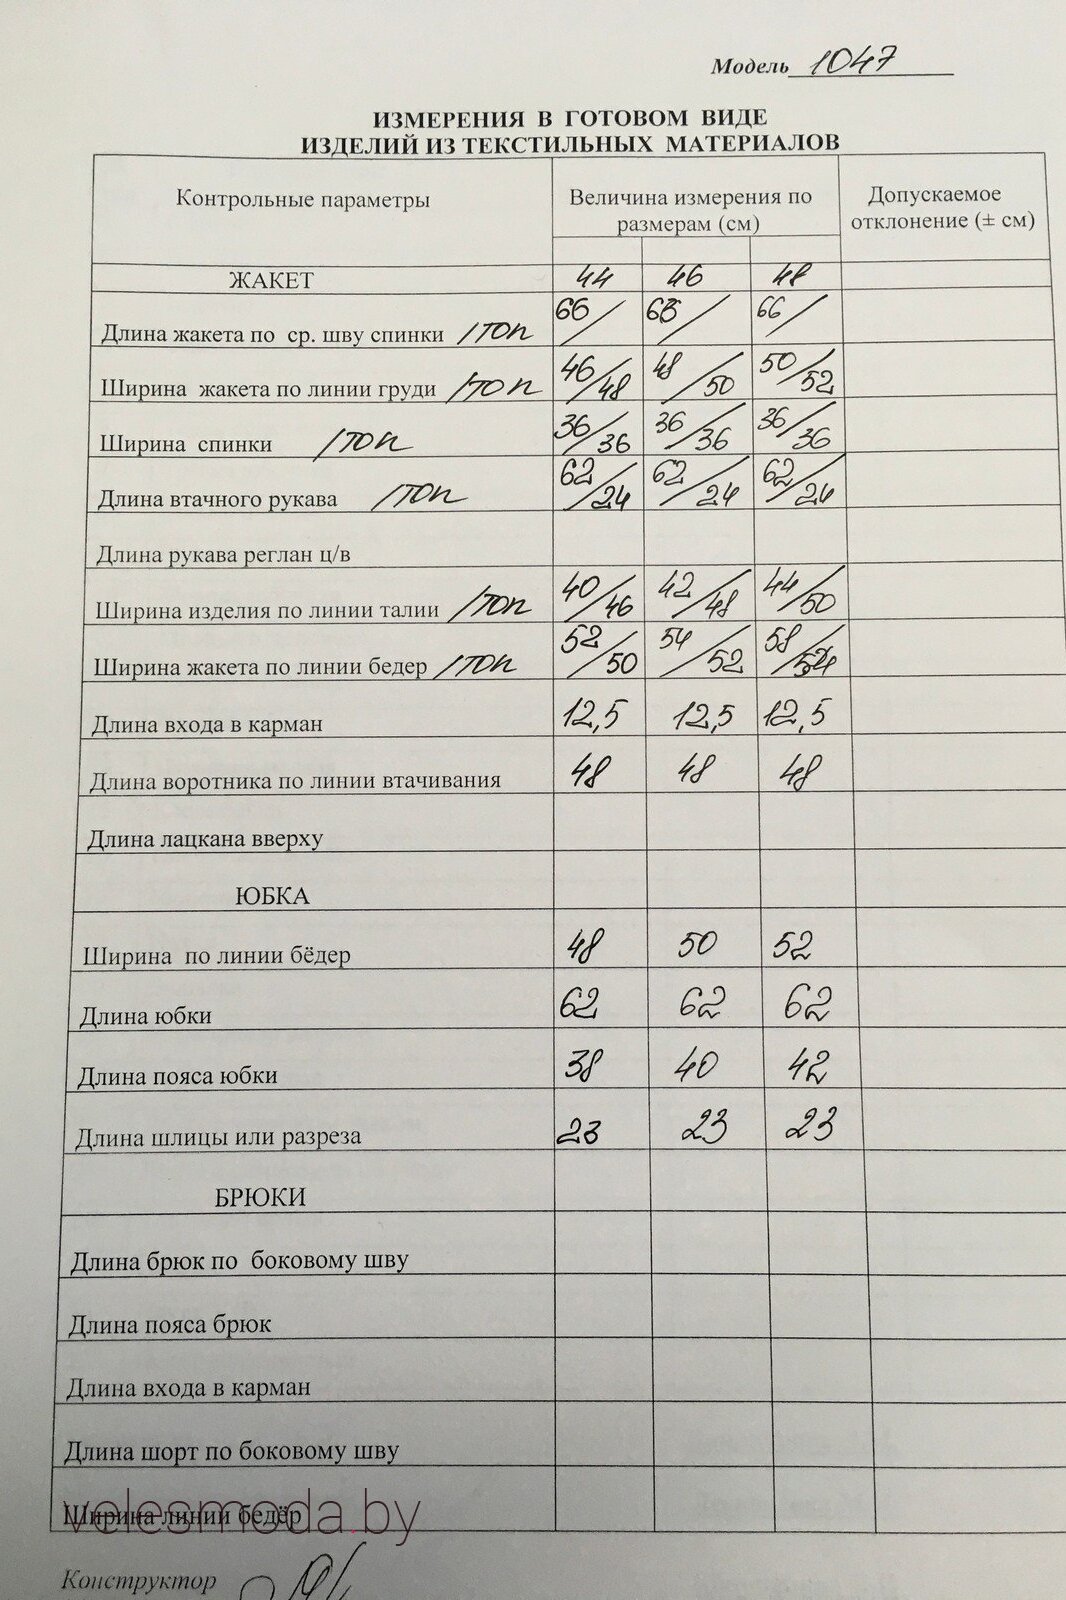 Модель 1047
ИЗМЕРЕНИЯ В ГОТОВОМ ВИДЕ
ИЗДЕЛИЙ ИЗ ТЕКСТИЛЬНЫХ МАТЕРИАЛОВ
Контрольные параметры Величина измерения по размерам (см) Допускаемое отклонение (± см)
ЖАКЕТ 44 46 48
Длина жакета по ср. шву спинки /топ 66/ 66/ 66/
Ширина жакета по линии груди /топ 46/48 48/50 50/52
Ширина спинки /топ 36/36 36/36 36/36
Длина втачного рукава /топ 62/24 62/24 62/24
Длина рукава реглан ц/в
Ширина изделия по линии талии /топ 40/46 42/48 44/50
Ширина жакета по линии бедер /топ 52/50 54/52 58/54
Длина входа в карман 12,5 12,5 12,5
Длина воротника по линии втачивания 48 48 48
Длина лацкана вверху
ЮБКА
Ширина по линии бёдер 48 50 52
Длина юбки 62 62 62
Длина пояса юбки 38 40 42
Длина шлицы или разреза 23 23 23
БРЮКИ
Длина брюк по боковому шву
Длина пояса брюк
Длина входа в карман
Длина шорт по боковому шву
Ширина линии бедёр
velesmoda.by
Конструктор